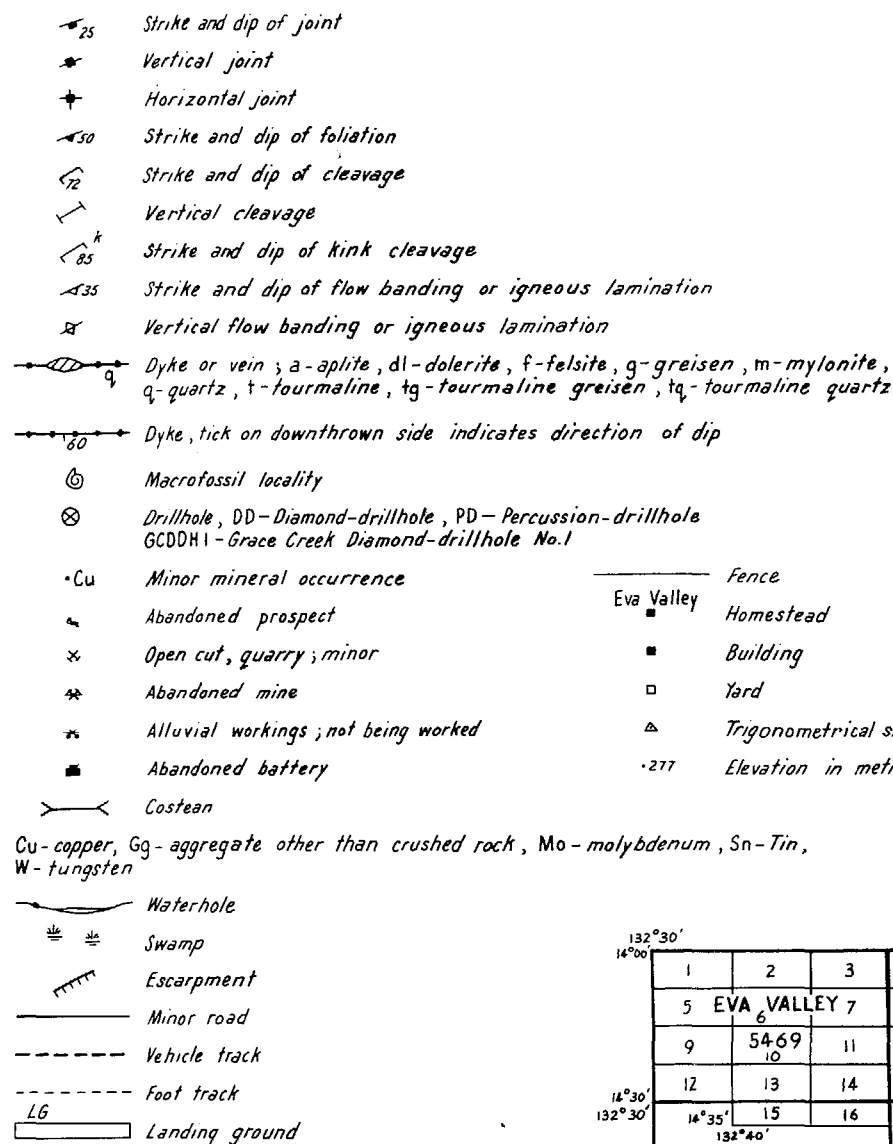 25 Strike and dip of joint
Vertical joint
Horizontal joint
50 Strike and dip of foliation
72 Strike and dip of cleavage
Vertical cleavage
k 85 Strike and dip of kink cleavage
35 Strike and dip of flow banding or igneous lamination
Vertical flow banding or igneous lamination
Dyke or vein ; a-aplite, dl-dolerite, f-felsite, g-greisen, m-mylonite,
q q-quartz, t-tourmaline, tg-tourmaline greisen, tq-tourmaline quartz
60 Dyke, tick on downthrown side indicates direction of dip
Macrofossil locality
Drillhole, DD-Diamond-drillhole, PD-Percussion-drillhole
GCDDH1-Grace Creek Diamond-drillhole No.1
·Cu Minor mineral occurrence
Abandoned prospect
Open cut, quarry ; minor
Abandoned mine
Alluvial workings ; not being worked
Abandoned battery
Costean
Fence
Eva Valley
Homestead
Building
Yard
Trigonometrical s
·277 Elevation in met
Cu-copper, Gg-aggregate other than crushed rock, Mo-molybdenum, Sn-Tin,
W-tungsten
Waterhole
Swamp
Escarpment
Minor road
Vehicle track
Foot track
LG
Landing ground
132°30'
14°00'
1 2 3
5 EVA VALLEY 7
6
9 5469 11
10
12 13 14
14°30'
132°30' 14°35' 15 16
132°40'